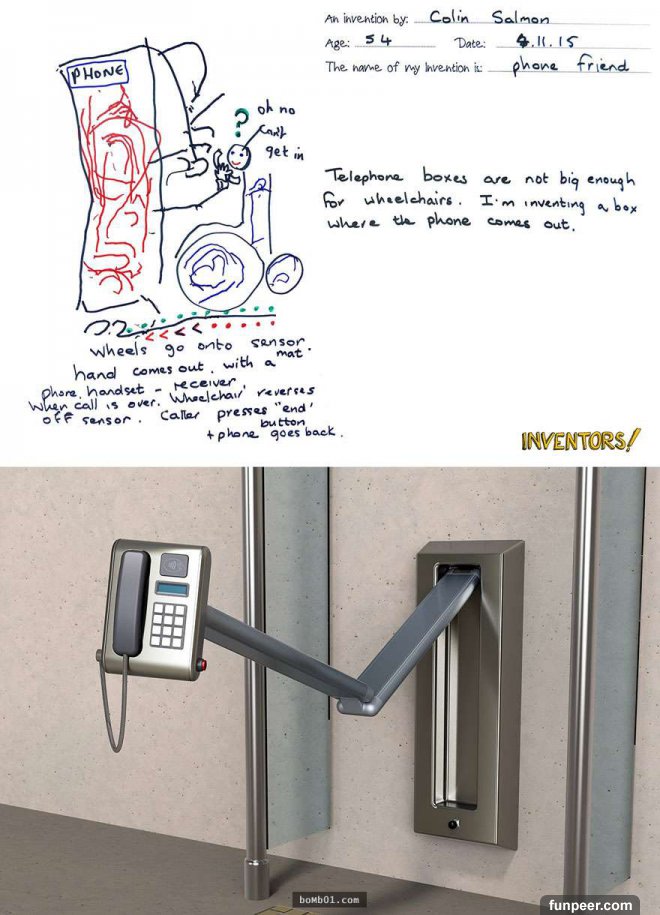 An invention by: Colin Salmon
Age: 54 Date: 4.11.15
The name of my Invention is: phone friend
PHONE
oh no
can't
get in
Telephone boxes are not big enough
for wheelchairs. I'm inventing a box
where the phone comes out.
wheels go onto sensor
mat.
hand comes out. with a
phone, handset - receiver
When call is over. Wheelchair reverses
off sensor. Caller presses "end'
button
+ phone goes back.
INVENTORS!
bomb01.com
funpeer.com